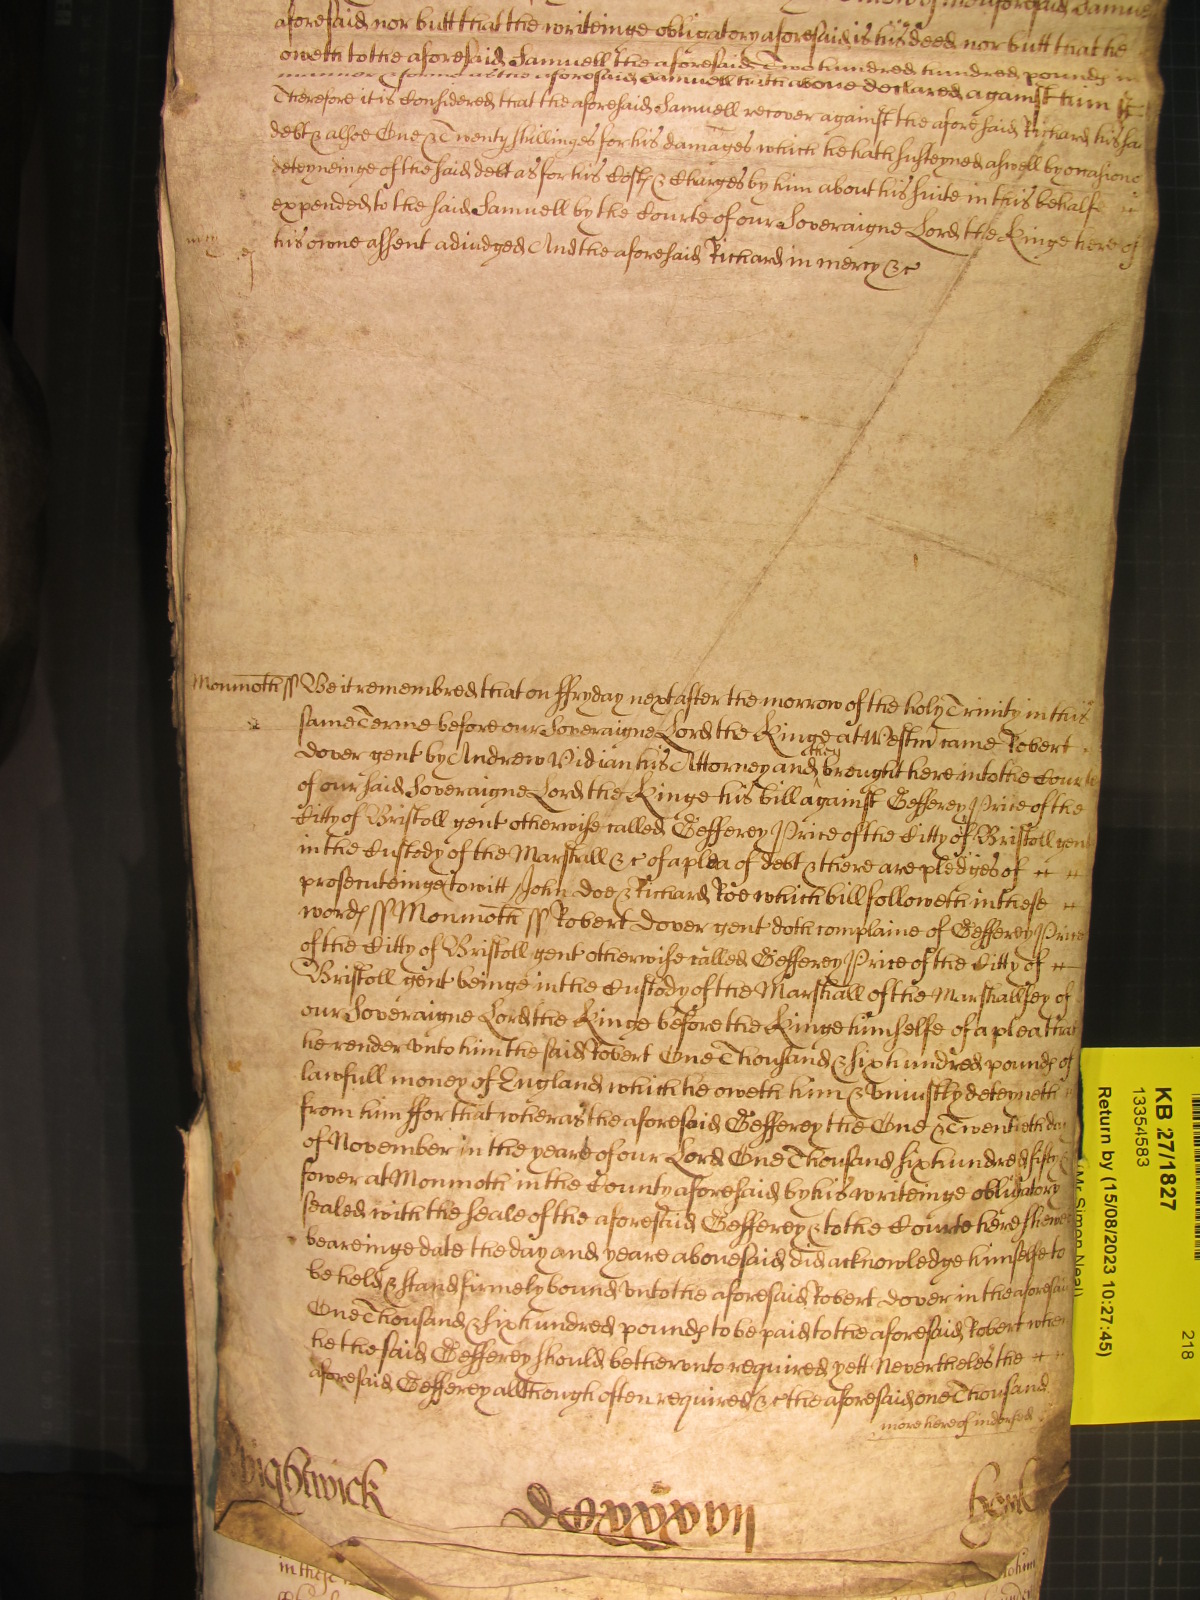 aforesaid nor butt that the writeinge obligatory aforesaid is his deed nor butt that he
oweth to the aforesaid Samuell the aforesaid Two hundred hundred pounds in
manner & forme as the aforesaid Samuell hath above declared against him
Therefore it is Considered that the aforesaid Samuell recover against the aforesaid Richard his sa
debt & alsoe One & Twenty shillinges for his damages which he hath susteyned aswell by occasione
deteyneinge of the said debt as for his Costs & Charges by him about his suite in this behalfe
expended to the said Samuell by the Courte of our Soveraigne Lord the Kinge here of
his owne assent adiudged And the aforesaid Richard in mercy &c
Monmoth ss Be it remembred that on ffryday next after the morrow of the holy Trinity in this
same Terme before our Soveraigne Lord the Kinge at Westm came Robert
Dover gent by Andrew Vidian his Attorney and then brought here into the Courte
of our said Soveraigne Lord the Kinge his bill against Gefferey Price of the
Citty of Bristoll gent otherwise called Gefferey Price of the Citty of Bristoll gent
in the Custody of the Marshall &c of a plea of debt & there are pledges of
prosecuteinge to witt John Doe & Richard Roe which bill followeth in these
words ss Monmoth ss Robert Dover gent doth complaine of Gefferey Price
of the Citty of Bristoll gent otherwise called Gefferey Price of the Citty of
Bristoll gent beinge in the Custody of the Marshall of the Marshallsey of
our Soveraigne Lord the Kinge before the Kinge himselfe of a plea that
he render vnto him the said Robert One Thousand & six hundred pounds of
lawfull money of England which he oweth him & vniustly deteyneth
from him ffor that wheras the aforesaid Gefferey the One & Twentieth day
of November in the yeare of our Lord One Thousand six hundred fifty &
fower at Monmoth in the County aforesaid by his writeinge obligatory
sealed with the seale of the aforesaid Gefferey & to the Courte here shewed
beareinge date the day and yeare abovesaid did acknowledge himselfe to
be held & stand firmely bound vnto the aforesaid Robert Dover in the aforesaid
One Thousand & six hundred pounds to be paid to the aforesaid Robert when
he the said Gefferey should be thervnto required yett Nevertheles the
aforesaid Gefferey allthough often required &c the aforesaid one Thousand
more hereof indorsed
hightwick
in these
KB 27/1827
13354583
Return by (15/08/2023 10:27:45)
(Mr Simon Neal)
218